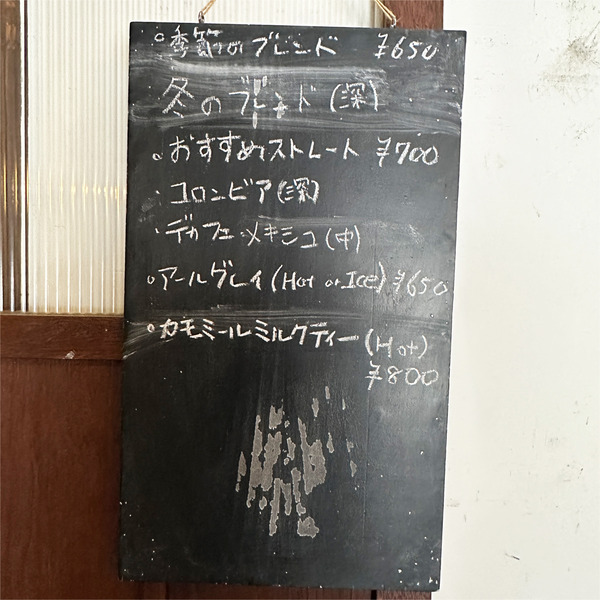 ○季節のブレンド ¥650
冬のブレンド(深)
○おすすめストレート ¥700
・コロンビア(深)
・デカフェ・メキシコ(中)
○アールグレイ(Hot or Ice) ¥650
○カモミールミルクティー(Hot)
¥800